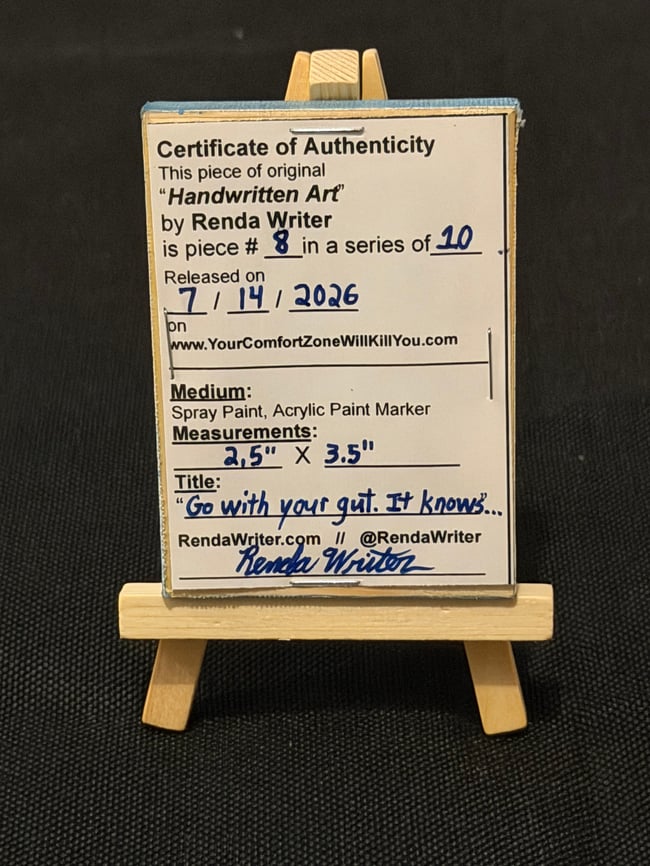 Certificate of Authenticity
This piece of original
"Handwritten Art"
by Renda Writer
is piece # 8 in a series of 10
Released on
7 / 14 / 2026
on
www.YourComfortZoneWillKillYou.com
Medium:
Spray Paint, Acrylic Paint Marker
Measurements:
2.5" X 3.5"
Title:
"Go with your gut. It knows"...
RendaWriter.com // @RendaWriter
Renda Writer